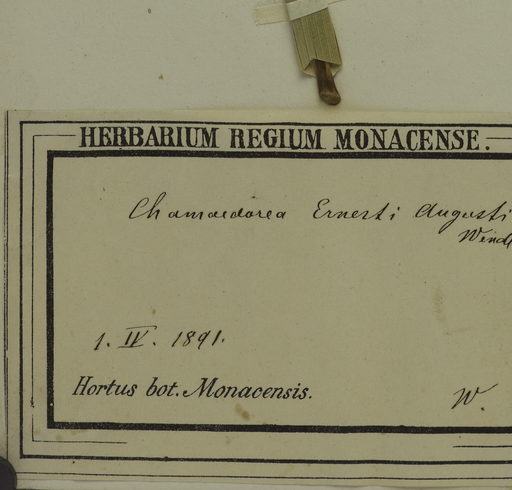 HERBARIUM REGIUM MONACENSE.
Chamaedorea Ernesti Augusti
Wendl
1. IV. 1891.
Hortus bot. Monacensis.
W.